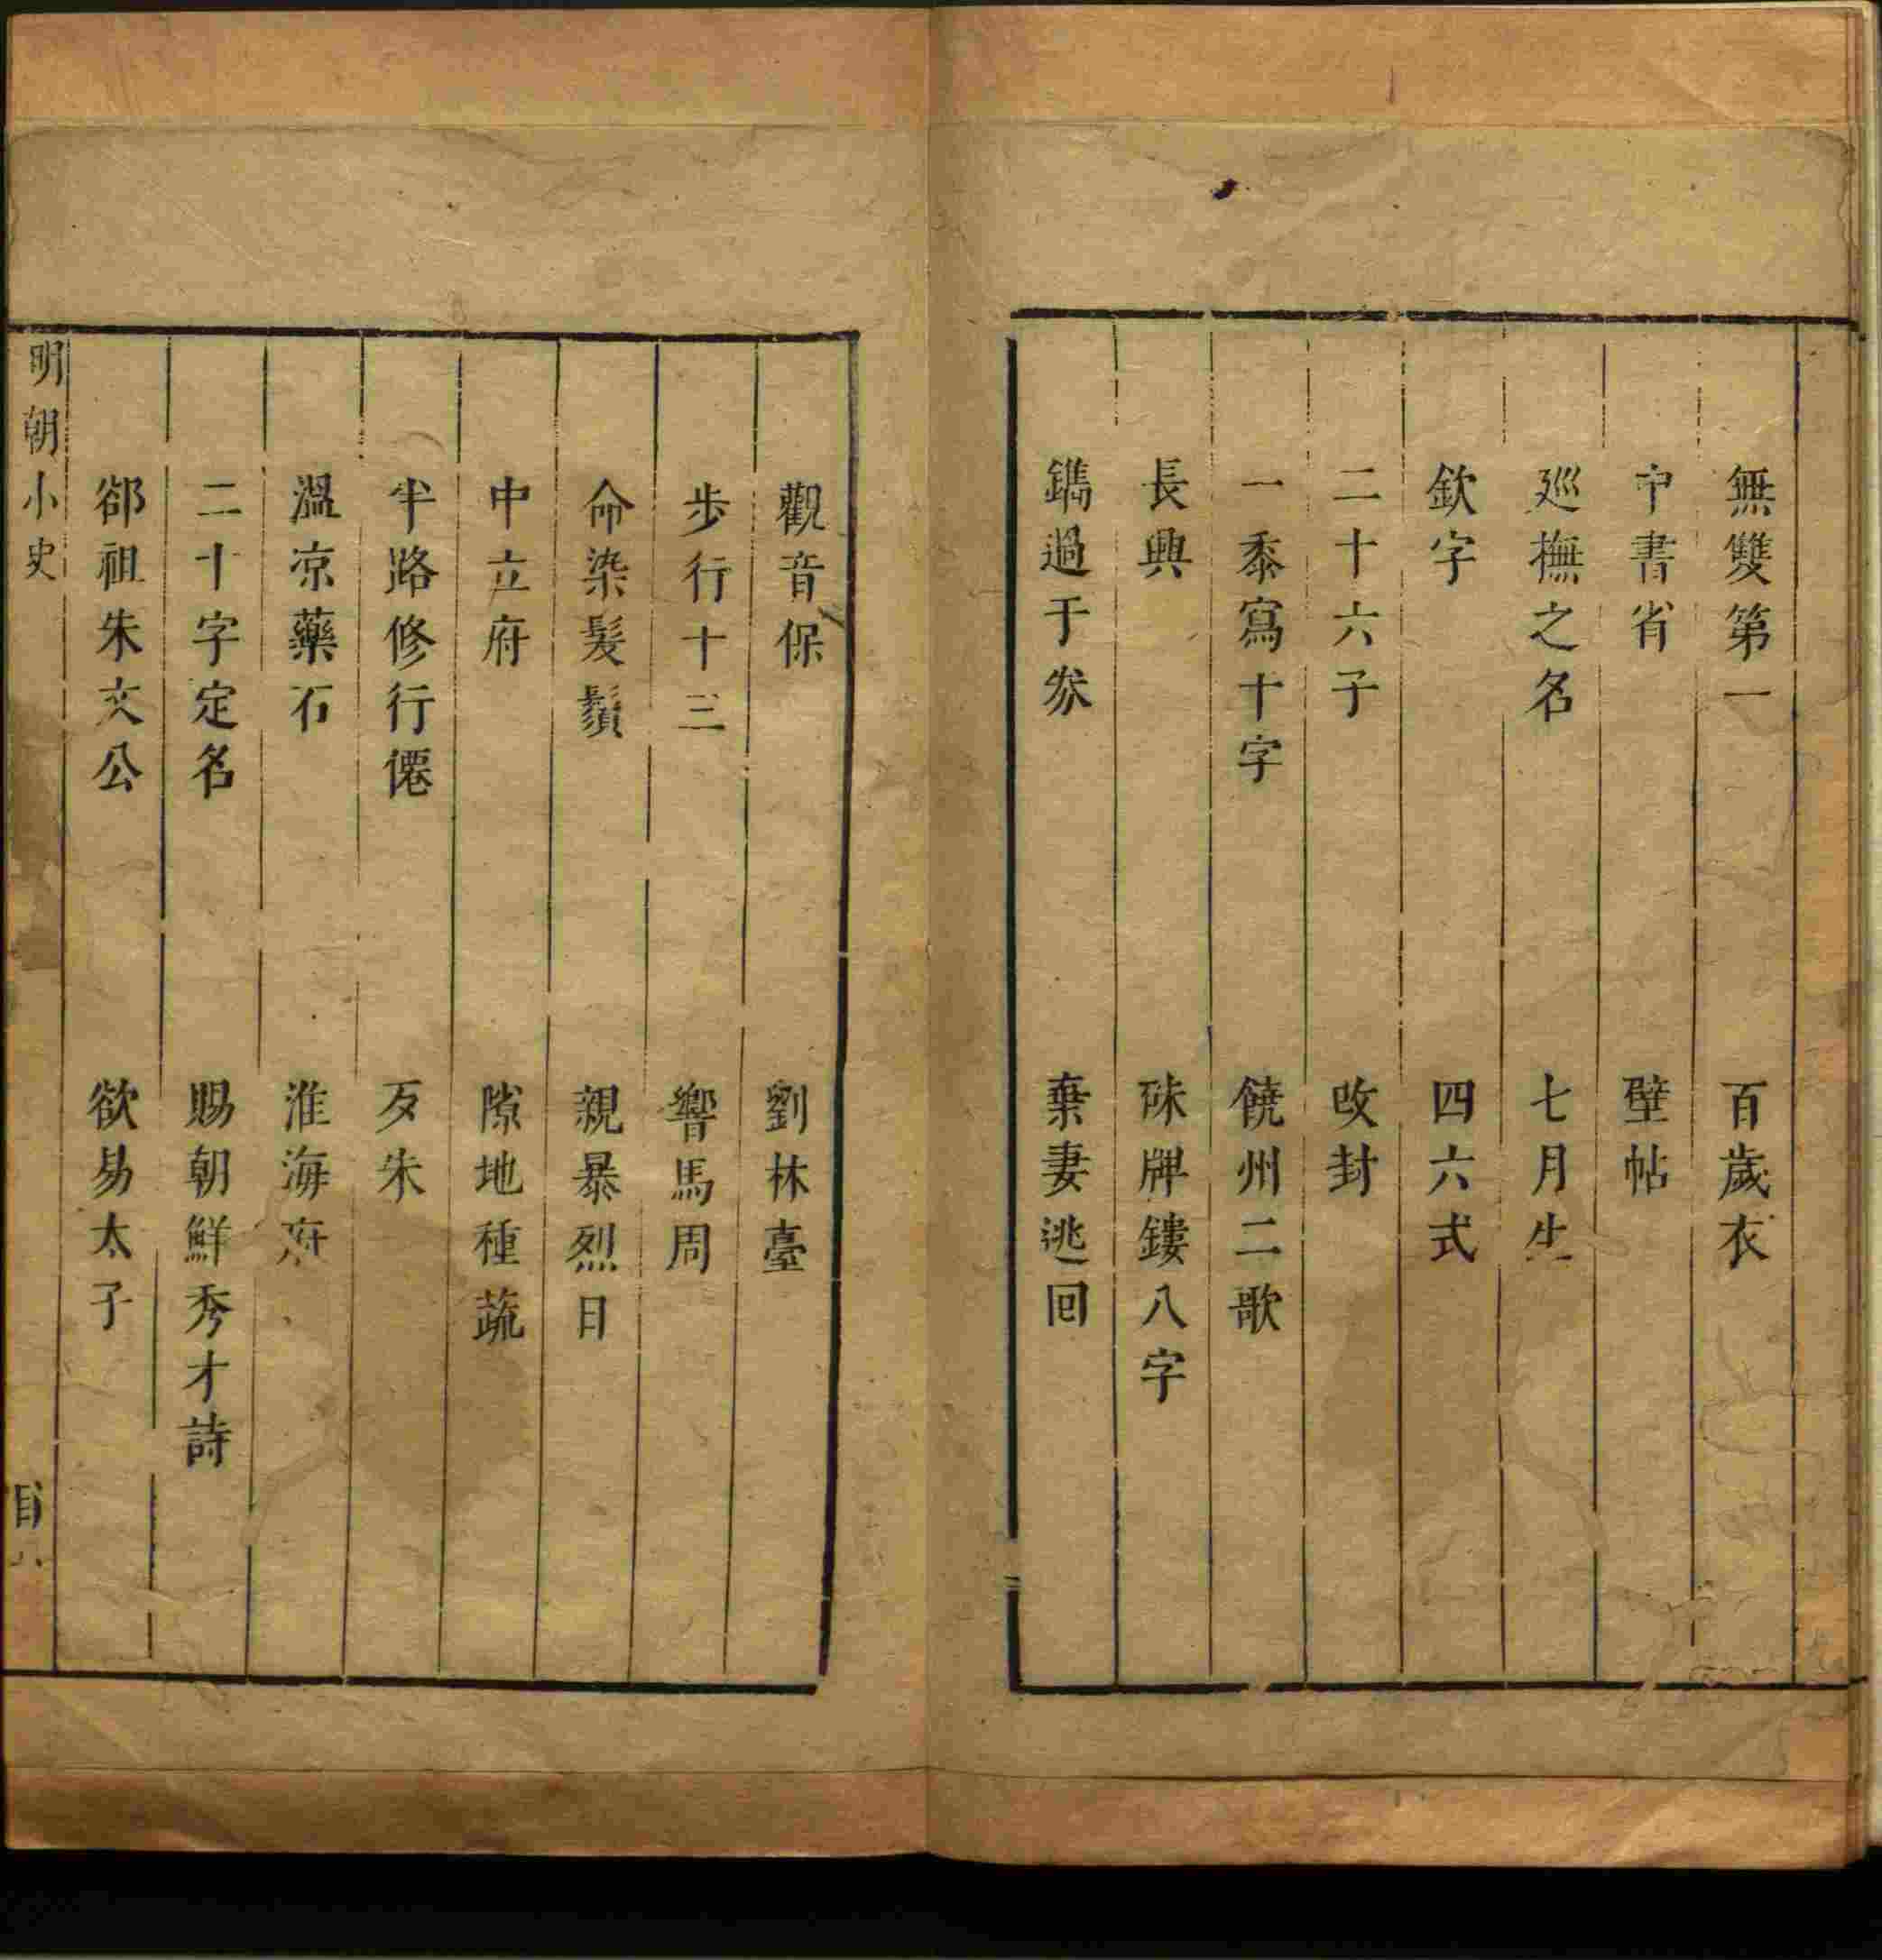 無雙第一　百歲衣
中書省　壁帖
廵撫之名　七月生
欽字　四六式
二十六子　改封
一黍寫十字　饒州二歌
長興　硃牌鏤八字
鐫過于衆　棄妻逃回
觀音保　劉林臺
步行十三　響馬周
命染髮鬚　親暴烈日
中立府　隙地種蔬
半路修行僊　歹朱
溫凉藥石　淮海府
二十字定名　賜朝鮮秀才詩
郤祖朱文公　欲易太子
明朝小史　目